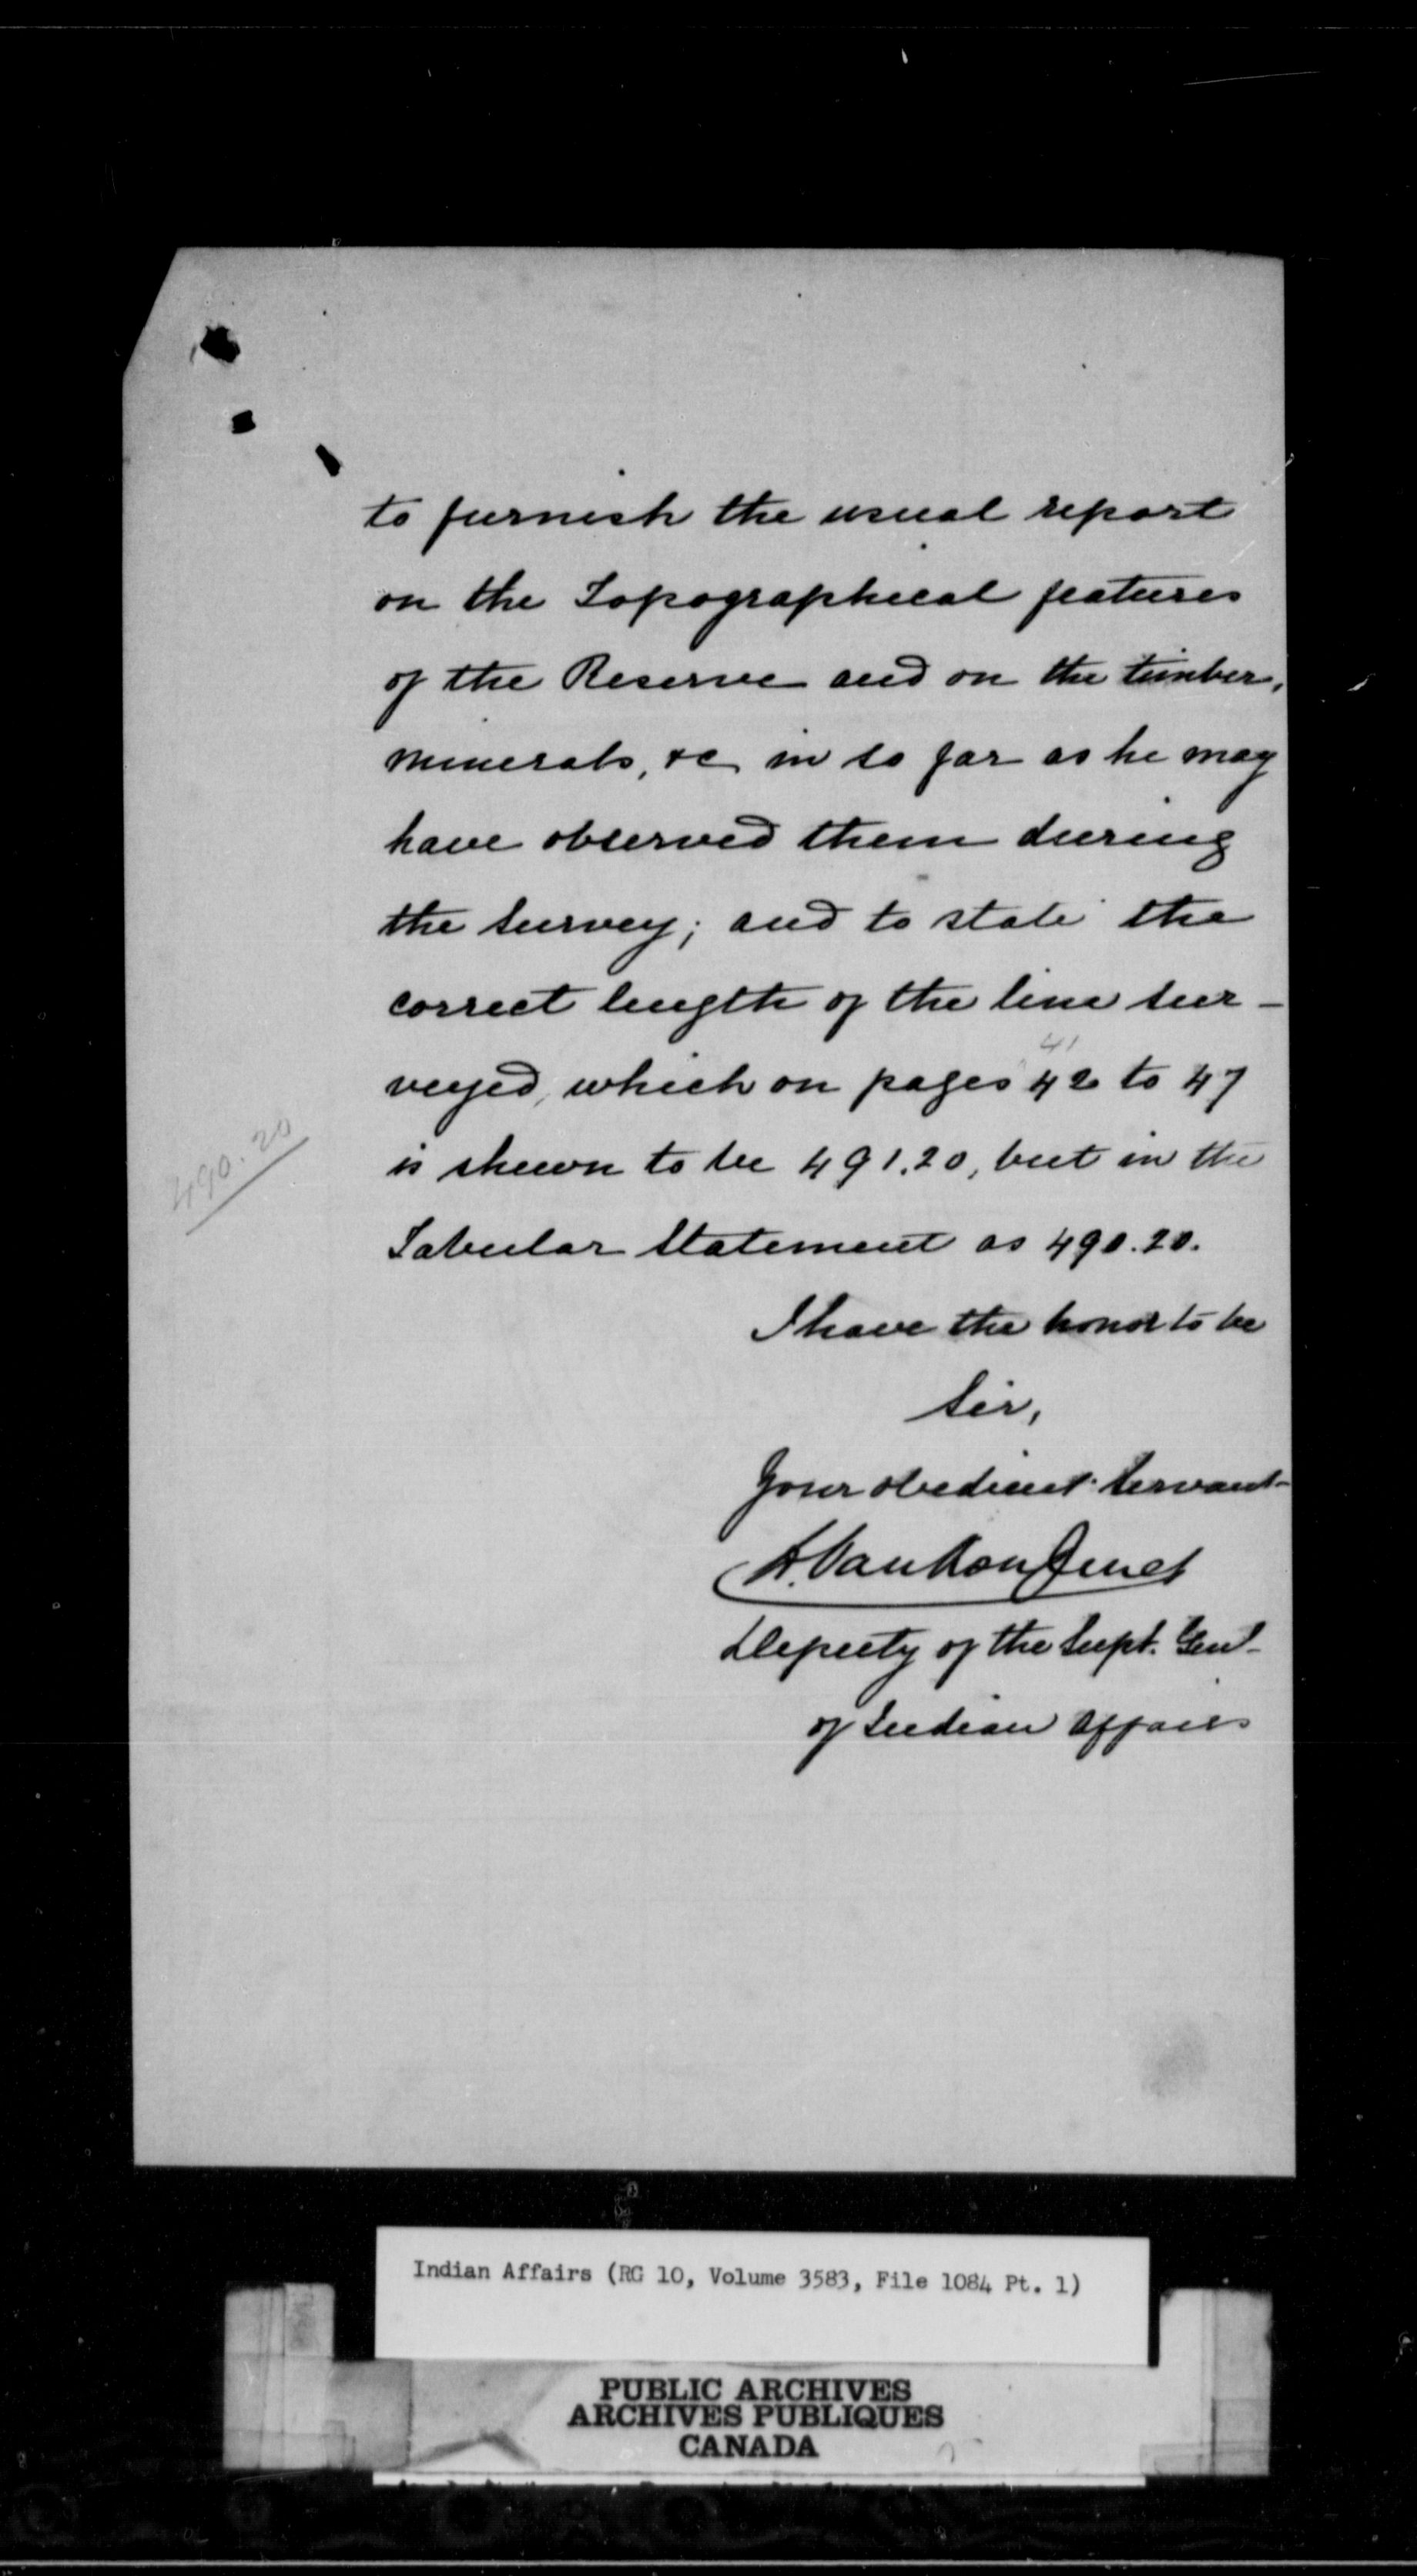 to furnish the usual report
on the Topographical features
of the Reserve and on the timber,
minerals, &c in so far as he may
have observed them during
the survey; and to state the
correct length of the line sur-
41
veyed, which on pages 42 to 47
490.20
is shewn to be 491.20, but in the
Tabular Statement as 490.20.
I have the honor to be
Sir,
Your obedient Servant
L. VanKoughnet
Deputy of the Supt. Genl
of Indian Affairs
Indian Affairs (RG 10, Volume 3583, File 1084 Pt. 1)
PUBLIC ARCHIVES
ARCHIVES PUBLIQUES
CANADA